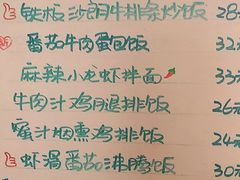 铁板沙朗牛排条炒饭 28
番茄牛肉蛋包饭 32
麻辣小龙虾拌面 25
牛肉汁鸡腿排饭 22
蜜汁烟熏鸡排饭 24元
虾滑番茄沸腾饭 30元